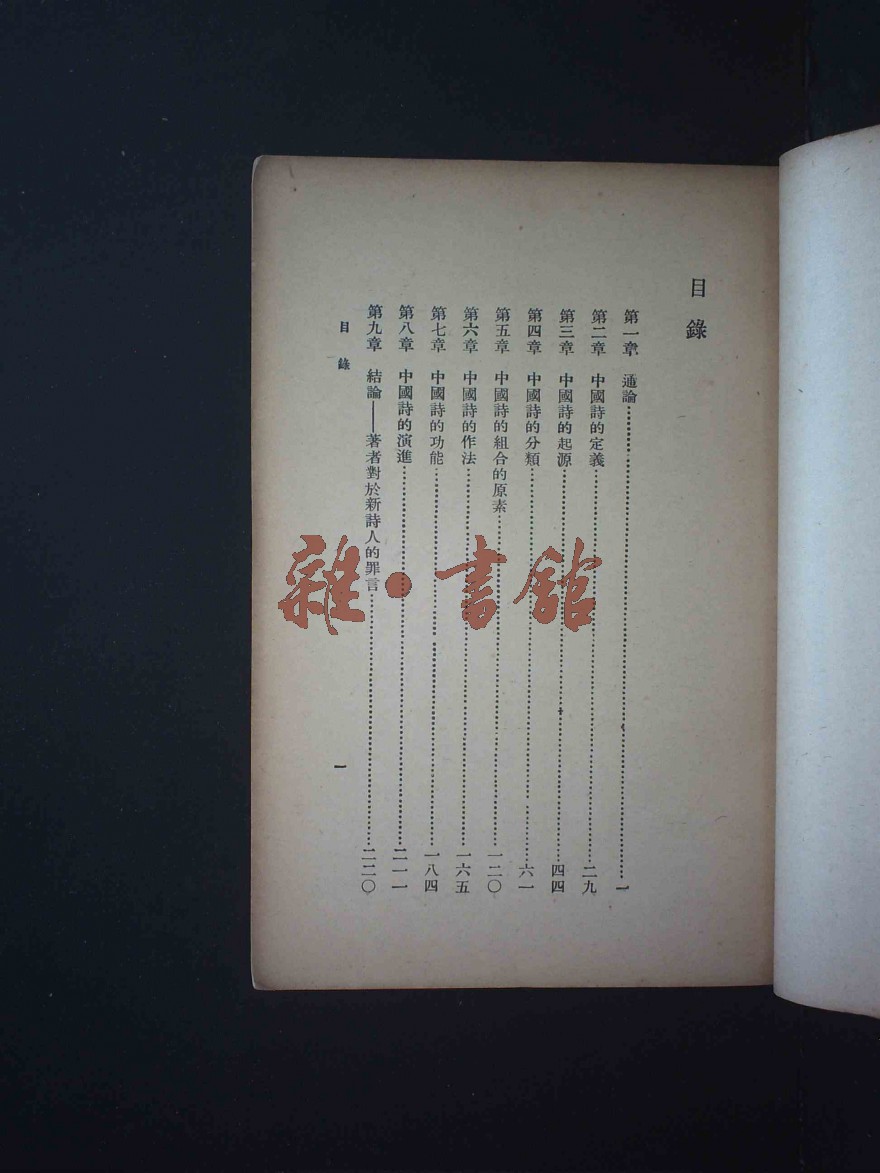 目錄
第一章 通論……一
第二章 中國詩的定義……二九
第三章 中國詩的起源……四四
第四章 中國詩的分類……六一
第五章 中國詩的組合的原素……一二〇
第六章 中國詩的作法……一六五
第七章 中國詩的功能……一八四
第八章 中國詩的演進……二一一
第九章 結論——著者對於新詩人的罪言……二二〇
目錄
一
雜·書館